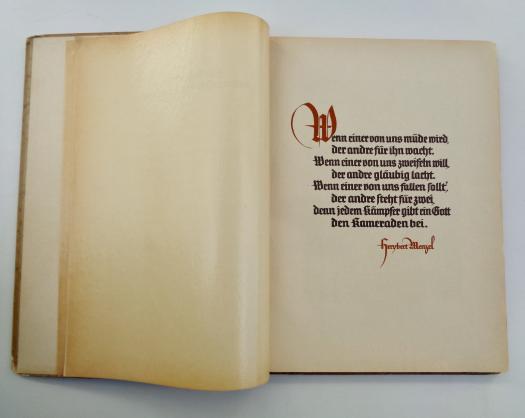 Wenn einer von uns müde wird,
der andre für ihn wacht.
Wenn einer von uns zweifeln will,
der andre gläubig lacht.
Wenn einer von uns fallen sollt',
der andre steht für zwei,
denn jedem Kämpfer gibt ein Gott
den Kameraden bei.
Herybert Menzel